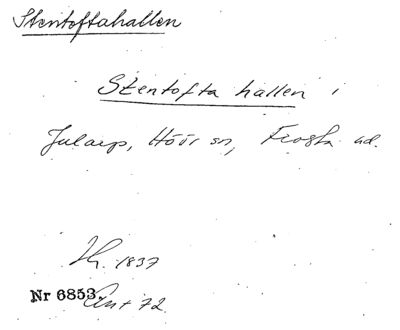 Stentoftahallen
Stentofta hallen i
Jularp, Höör sn, Frosta hd.
Hz. 1837
Nr 6853. Ant 72.